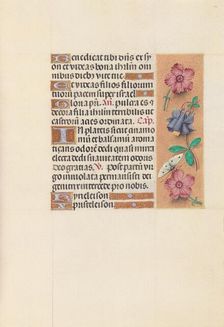 Benedicat tibi dñs ex sy
on et videas bona ihrlm om
nibus dieb⁹ vite tue
Et videas filios filiorum
tuorum pacem super israel
Gloria pñ. Añ. pulcra es et
decora filia ihrlm terribilis vt
castrorũ acies ordinata. Cap.
In plateis sicut cynamo
mum et balsamũ aroma
tizans odorẽ dedi quasi mirra
electa dedi suauitatem odoris
deo gratias. V. Post partũ vir
go inuiolata permansisti dei
genitrix intercede pro nobis.
Kyrieleison
Xpisteleison